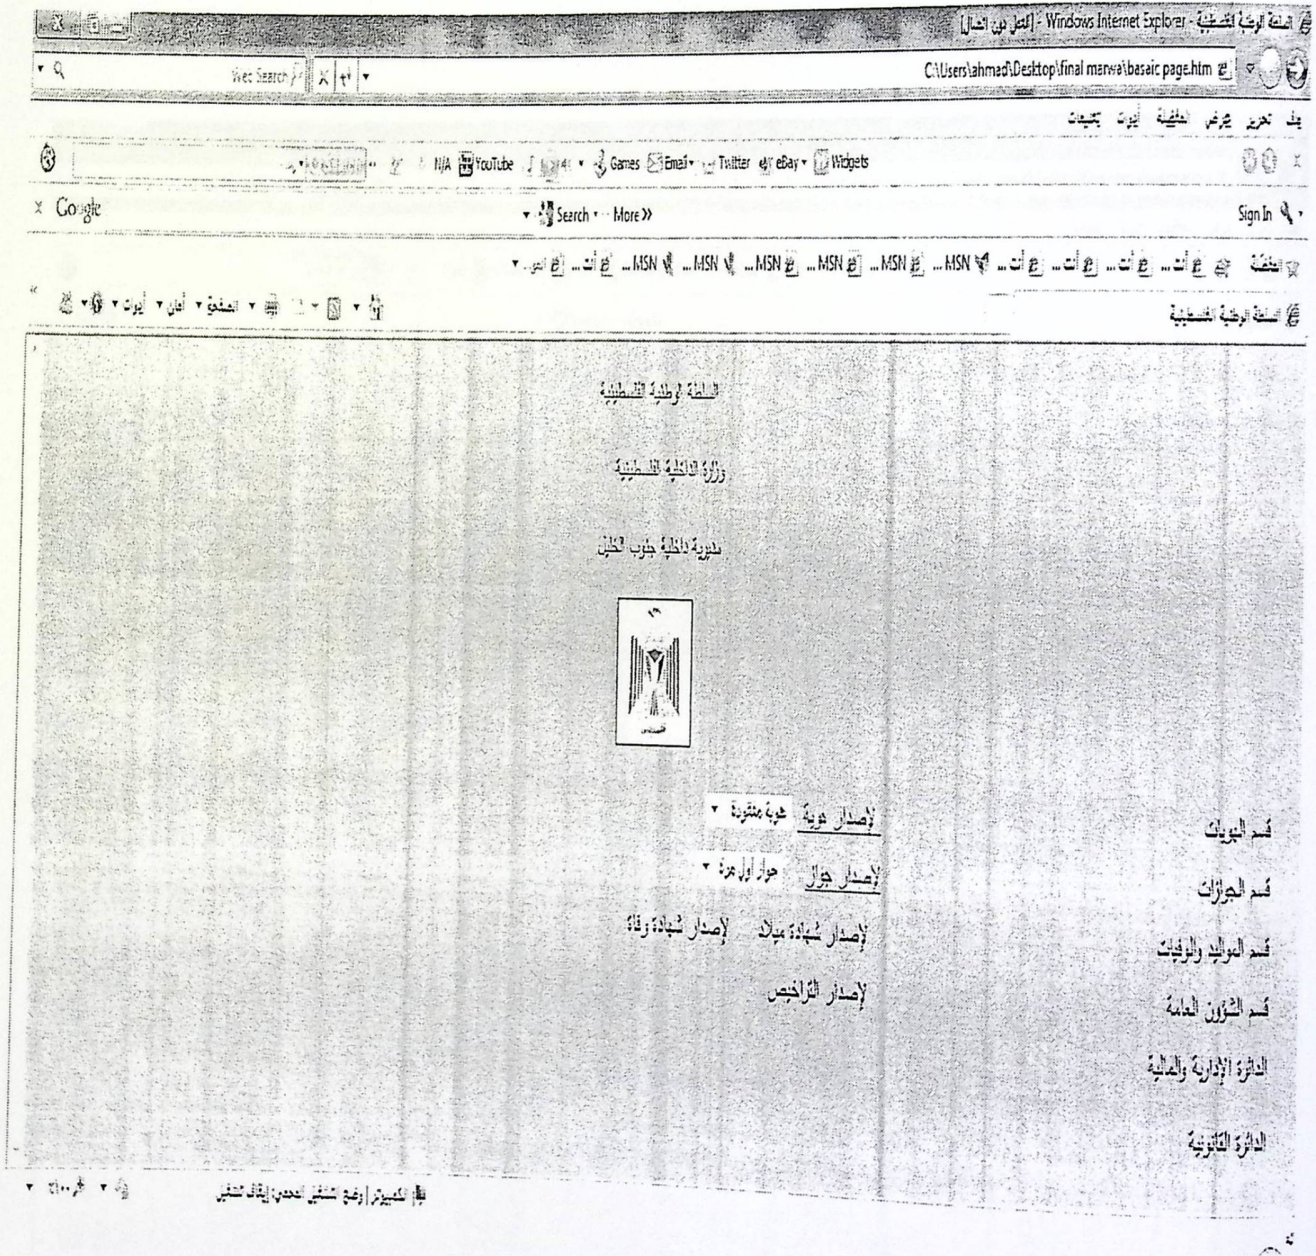 السلطة الوطنية الفلسطينية - Windows Internet Explorer - [العمل دون اتصال]
C:\Users\ahmad\Desktop\final marwa\basaic page.htm
Web Search
ملف تحرير عرض المفضلة أدوات تعليمات
N/A YouTube Games Email Twitter eBay Widgets
Google Search More >> Sign In
المفضلة أنت ... أنت ... أنت ... أنت ... MSN ... MSN ... MSN ... MSN ... MSN ... MSN ... أنت ...
السلطة الوطنية الفلسطينية
الصفحة أمان أدوات
السلطة الوطنية الفلسطينية
وزارة الداخلية الفلسطينية
مديرية داخلية جنوب الخليل
فلسطين
قسم الهويات لإصدار هوية هوية مفقودة
قسم الجوازات لإصدار جواز جواز اول مرة
قسم المواليد والوفيات لإصدار شهادة ميلاد لإصدار شهادة وفاة
قسم الشؤون العامة لإصدار التراخيص
الدائرة الإدارية والمالية
الدائرة القانونية
الكمبيوتر | وضع التشغيل المحمي: إيقاف تشغيل ١٠٠%